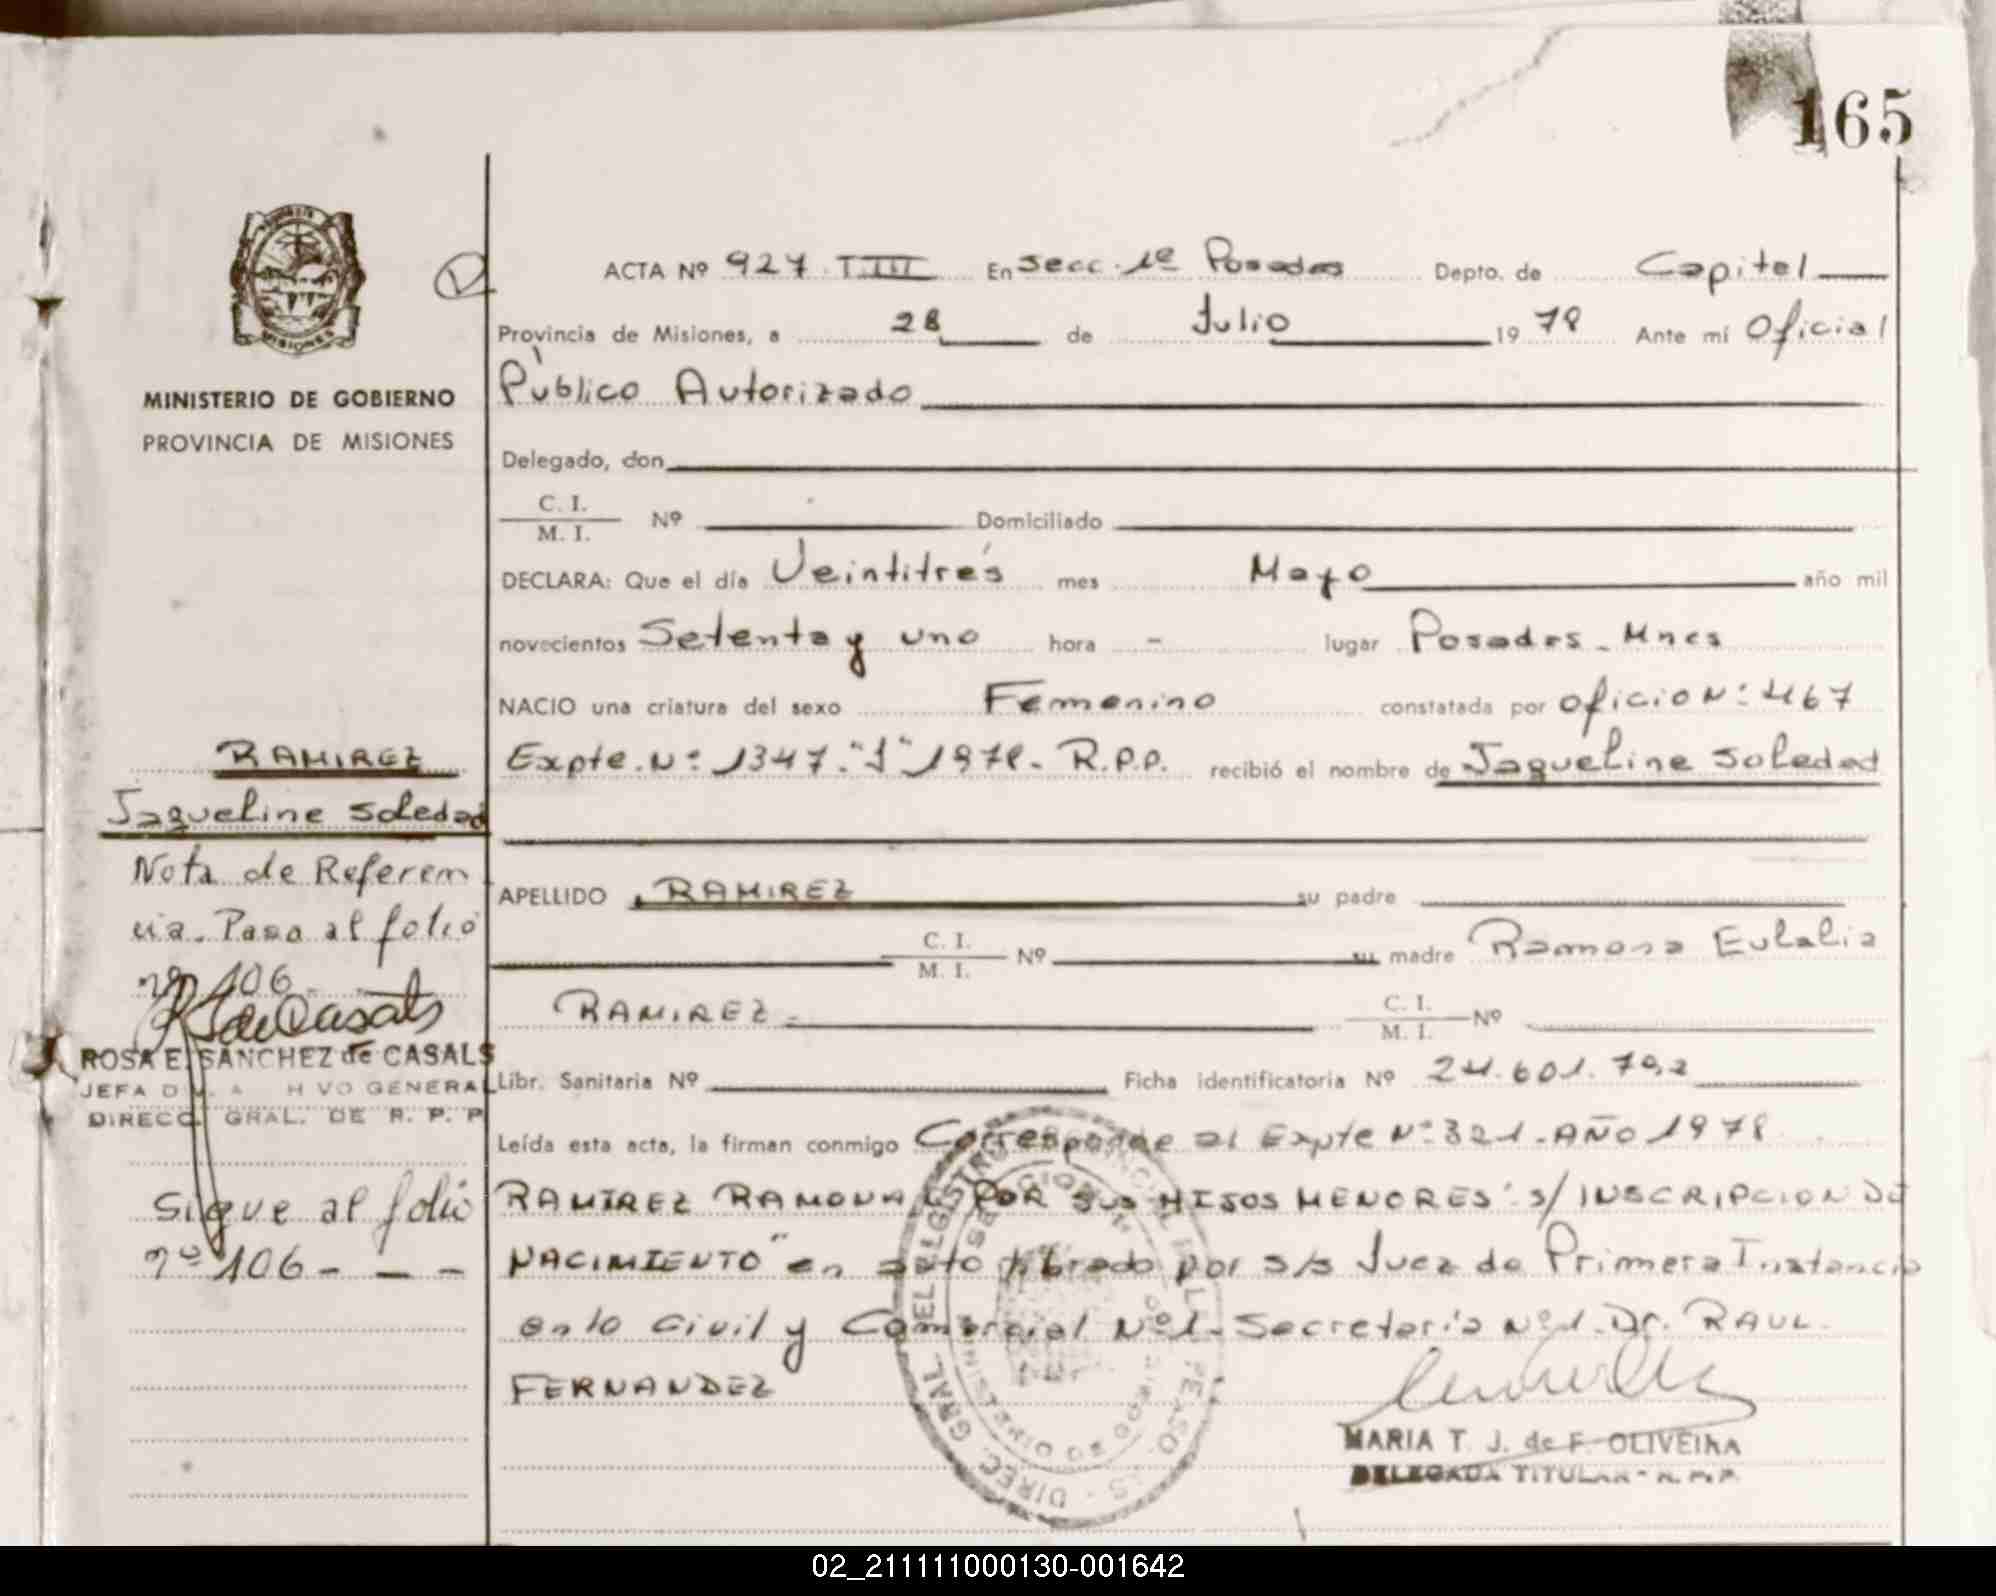 165
MISIONES
MINISTERIO DE GOBIERNO
PROVINCIA DE MISIONES
ACTA Nº 927 T.III En Secc. 1º Posadas Depto. de Capital
Provincia de Misiones, a 28 de Julio 1978 Ante mí Oficial
Público Autorizado
Delegado, don
C. I.
M. I. Nº Domiciliado
DECLARA: Que el día Veintitrés mes Mayo año mil
novecientos Setenta y uno hora - lugar Posadas - Mnes
NACIO una criatura del sexo Femenino constatada por oficio Nº: 467
Expte. Nº: 1347."J" 1978 - R.P.P. recibió el nombre de Jaqueline Soledad
APELLIDO RAMIREZ su padre
C. I.
M. I. Nº su madre Ramona Eulalia
RAMIREZ - C. I.
M. I. Nº
Libr. Sanitaria Nº Ficha identificatoria Nº 24.601.702
Leída esta acta, la firman conmigo Corresponde al Expte Nº 321 - AÑO 1978
RAMIREZ RAMONA POR SUS HIJOS MENORES S/ INSCRIPCION DE
NACIMIENTO" en auto librado por s/s Juez de Primera Instancia
en lo Civil y Comercial Nº 1 - Secretaría Nº 1 - Dr. RAUL
FERNANDEZ
MARIA T. J. de F. OLIVEIRA
DELEGADA TITULAR - R. P. P.
RAMIREZ
Jaqueline Soledad
Nota de Referen
cia. Pasa al folio
nº 106 -
R S de Casals
ROSA E. SANCHEZ de CASALS
JEFA D A H VO GENERAL
DIRECC. GRAL. DE R. P. P
Sigue al folio
nº 106 - - -
02_211111000130-001642